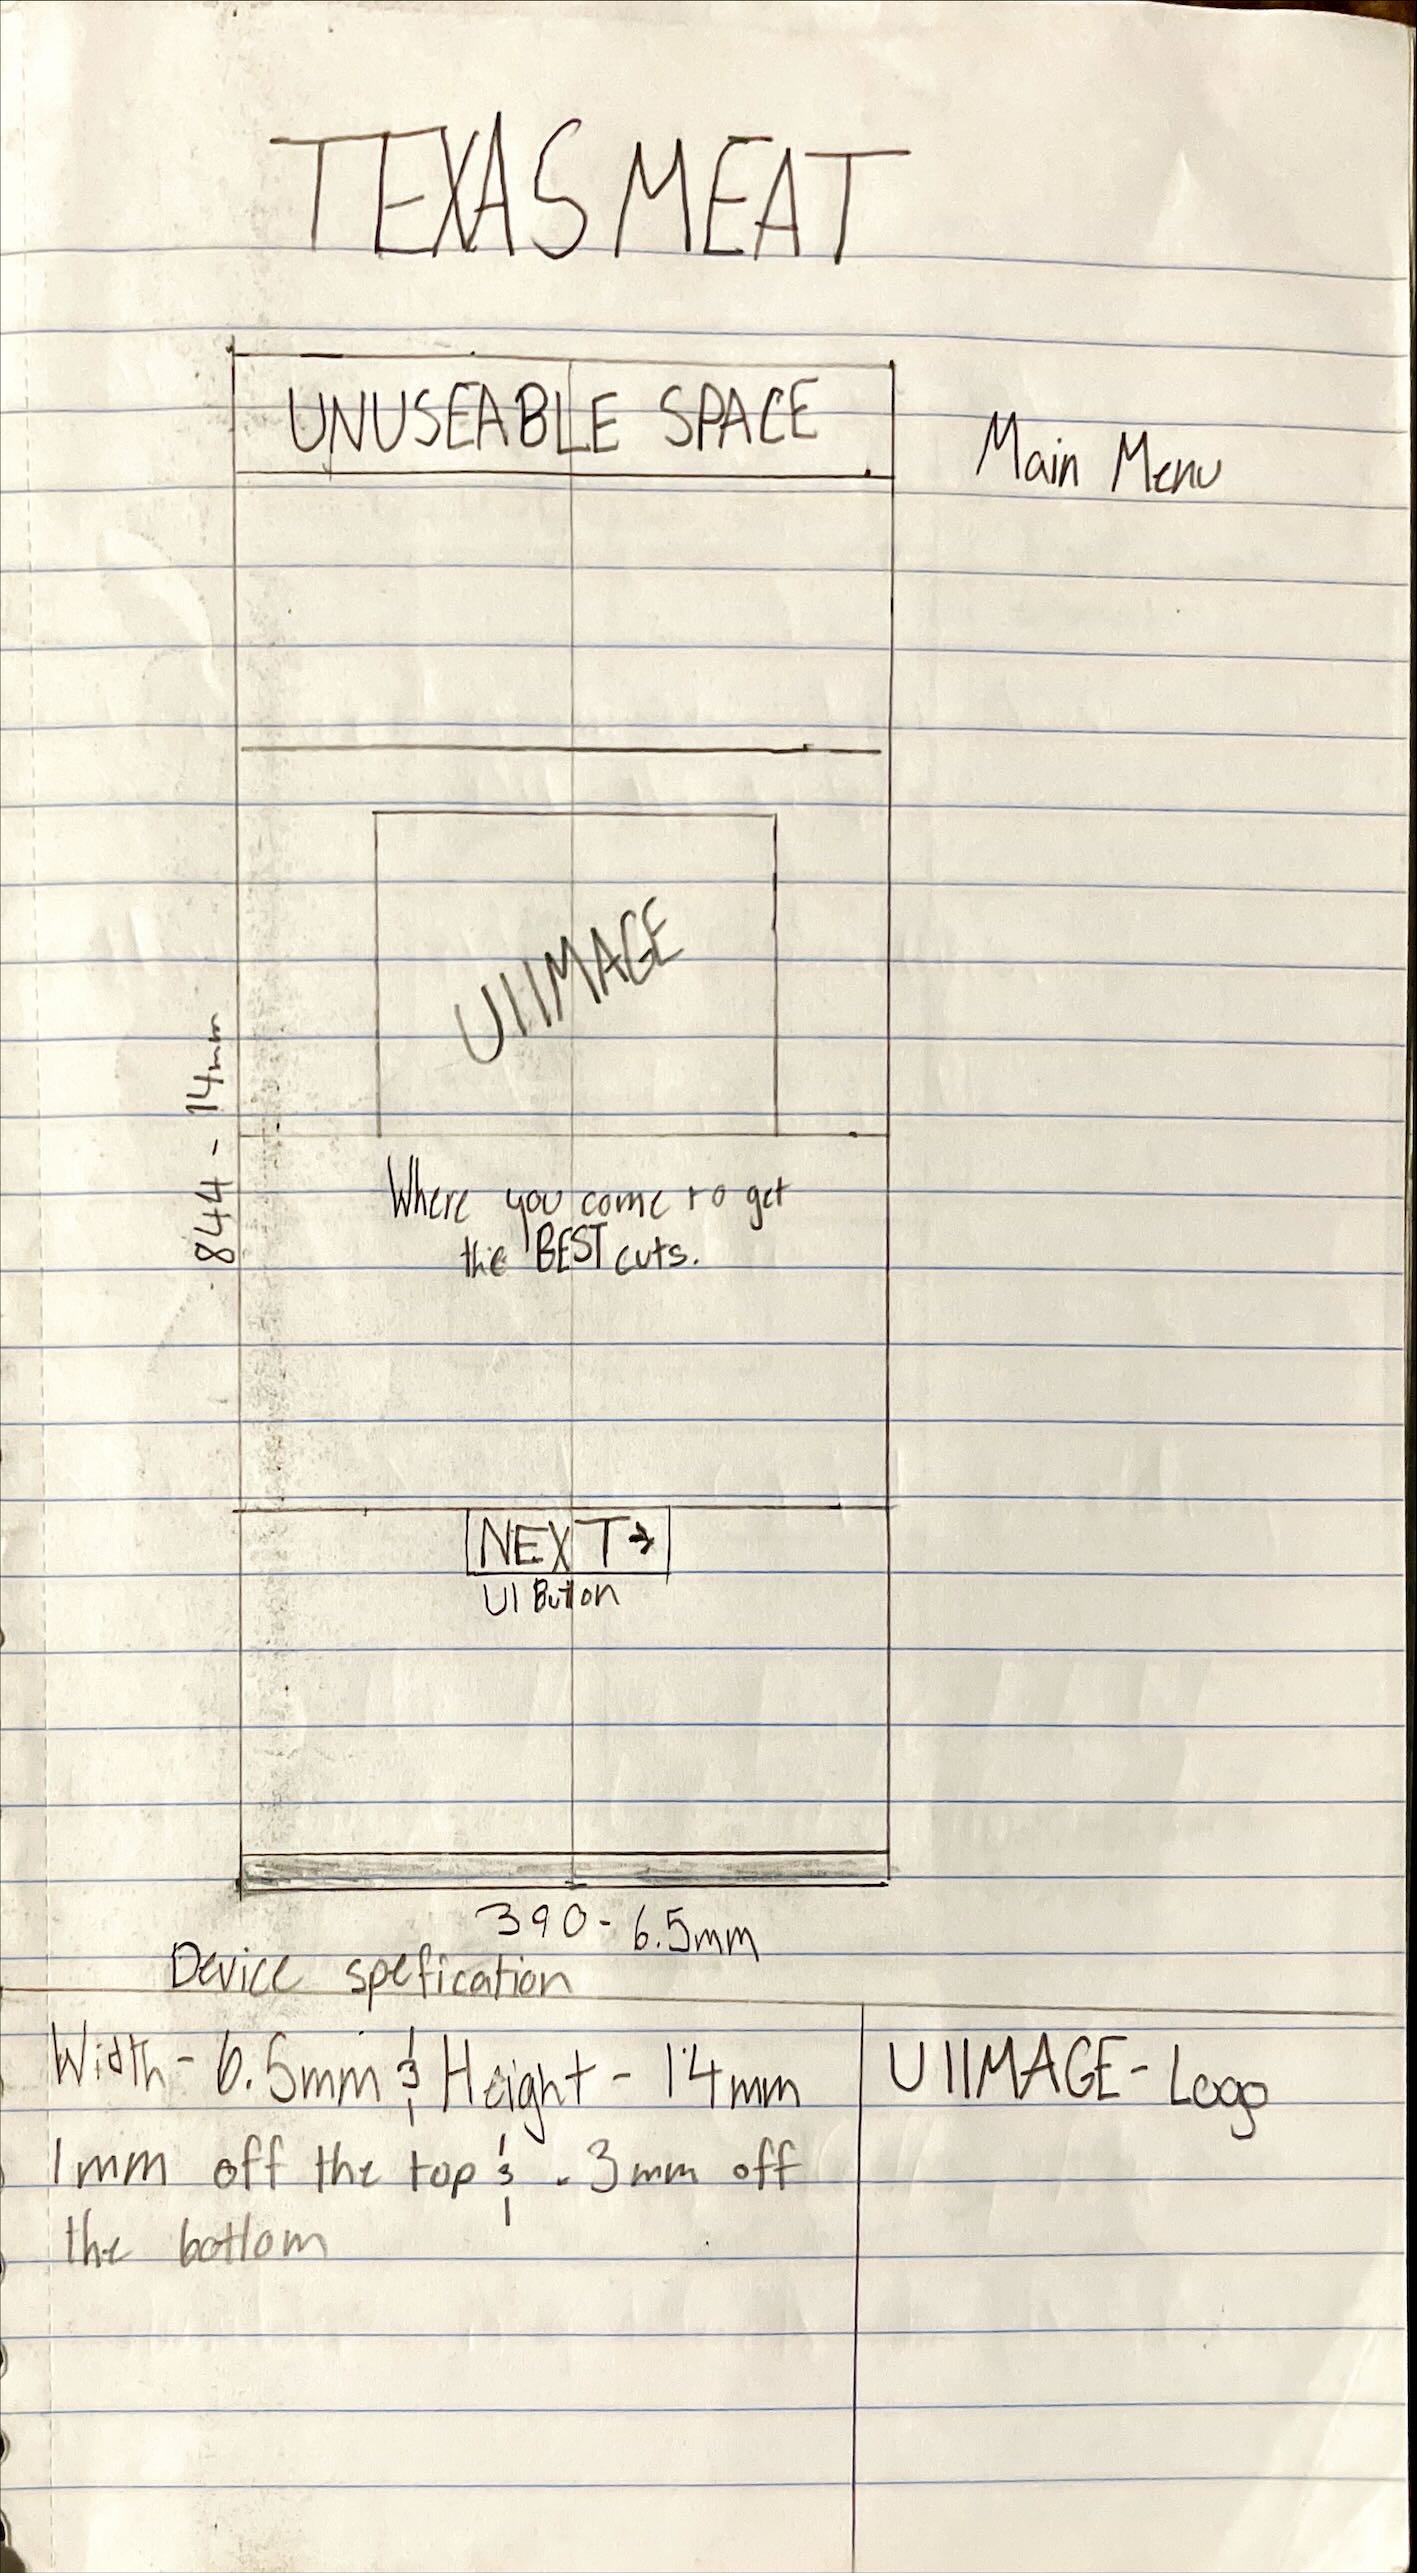 TEXAS MEAT
UNUSEABLE SPACE
Main Menu
UIIMAGE
844 - 14mm
Where you come to get
the BEST cuts.
NEXT→
UI Button
390 - 6.5mm
Device spefication
Width - 6.5mm & Height - 14mm
1mm off the top & .3mm off
the bottom
UIIMAGE - Logo